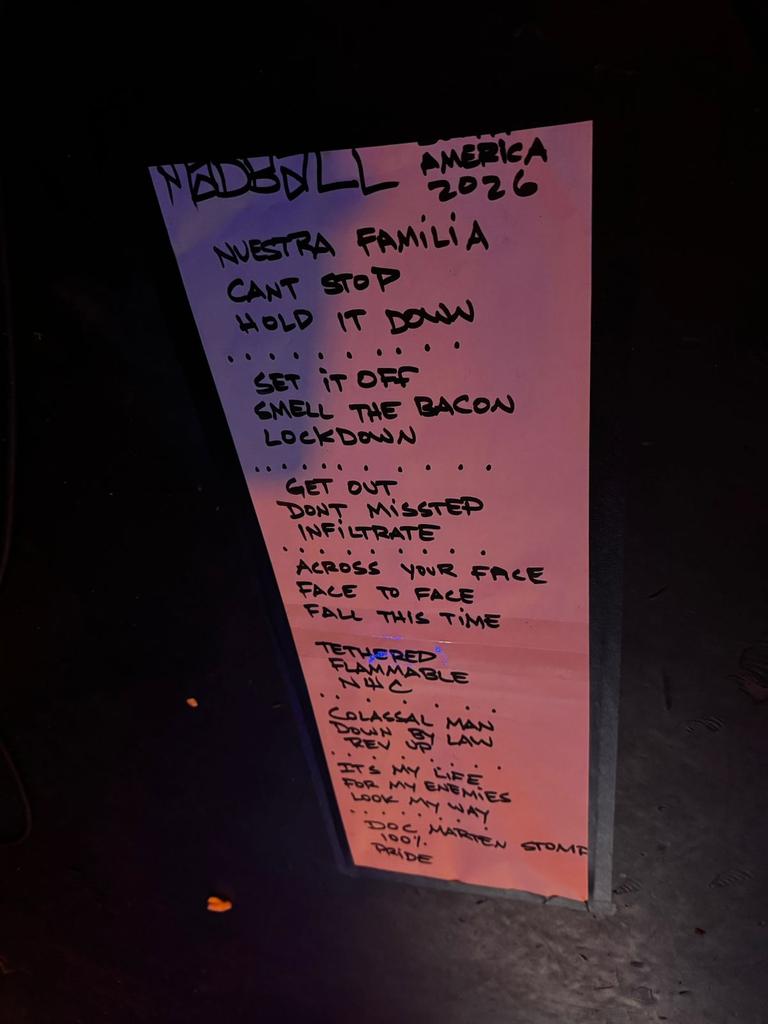 MADBALL
AMERICA
2026
NUESTRA FAMILIA
CANT STOP
HOLD IT DOWN
..........
SET IT OFF
SMELL THE BACON
LOCKDOWN
..........
GET OUT
DONT MISSTEP
INFILTRATE
.........
ACROSS YOUR FACE
FACE TO FACE
FALL THIS TIME
TETHERED
FLAMMABLE
NHC
........
COLASSAL MAN
DOWN BY LAW
REV UP
.........
ITS MY LIFE
FOR MY ENEMIES
LOOK MY WAY
........
DOC MARTEN STOMP
100%
PRIDE